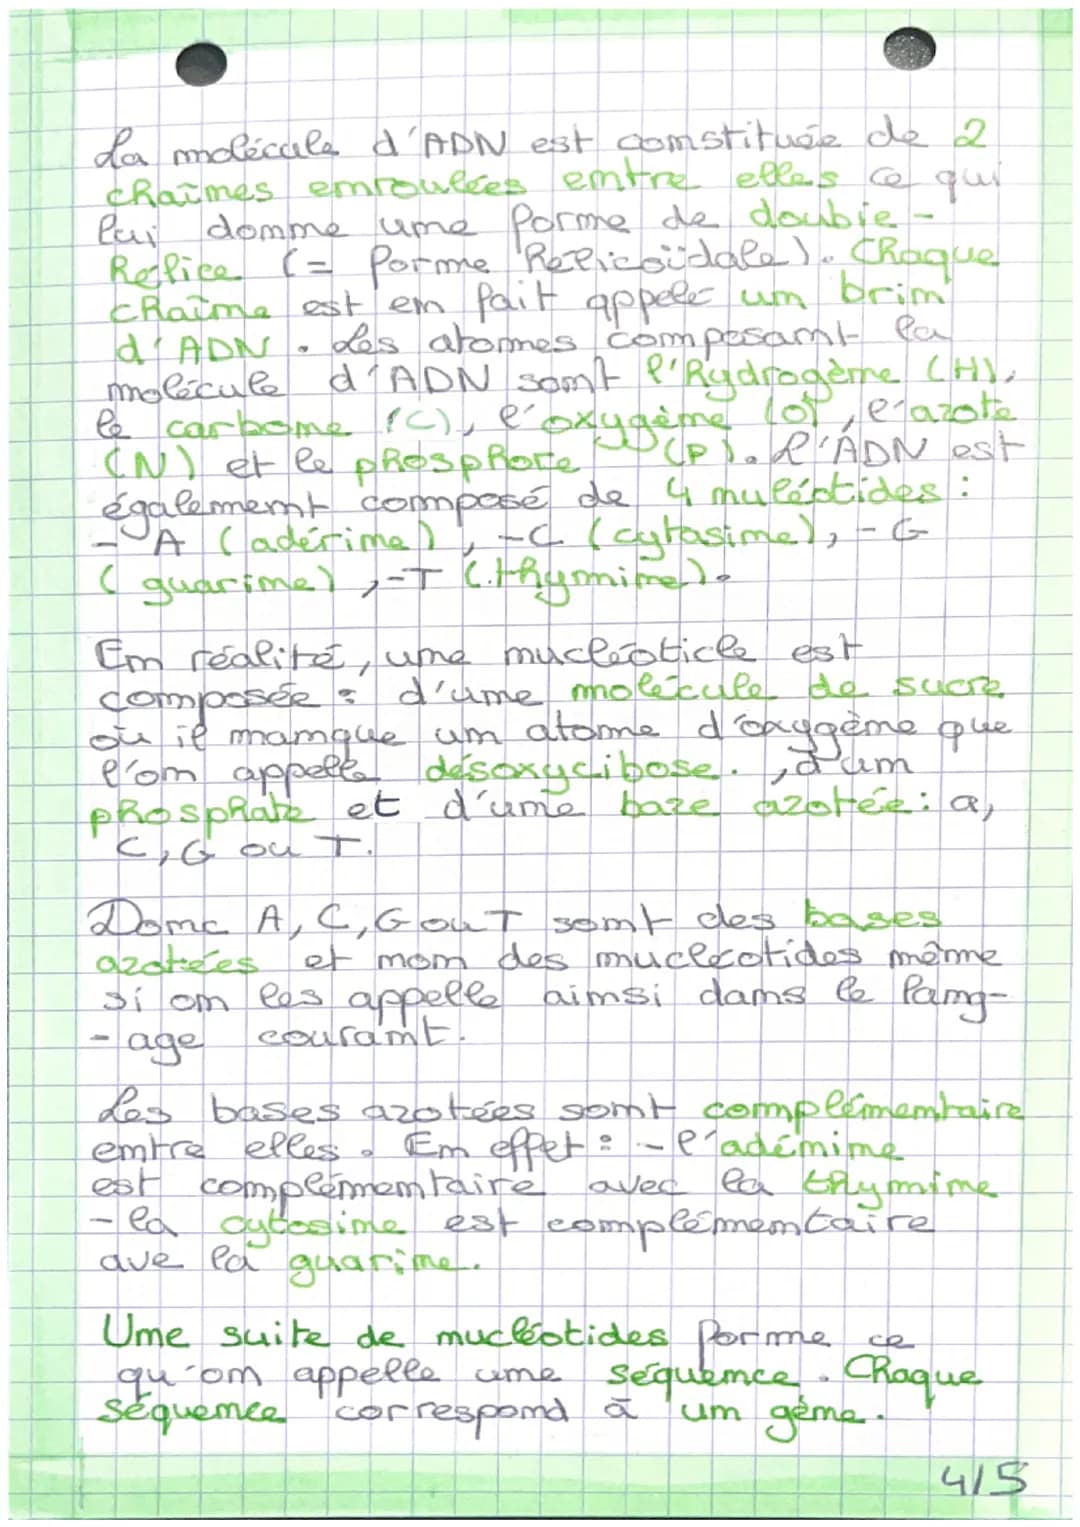 La molécule d'ADN est constituée de 2
chaînes enroulées entre elles ce qui
lui donne une forme de double-
hélice (= forme hélicoïdale). Chaque
chaîne est en fait appelé un brin
d'ADN. Les atomes composant la
molécule d'ADN sont l'hydrogène (H),
le carbone (C), l'oxygène (O), l'azote
(N) et le phosphore (P). L'ADN est
également composé de 4 nuléotides :
- A (adérine), -C (cytasine), - G
(guarine), -T (thymine).
En réalité, une nucléotide est
composée : d'une molécule de sucre
où il manque un atome d'oxygène que
l'on appelle désoxycibose. , d'un
phosphate et d'une baze azotée : a,
C, G ou T.
Donc A, C, G ou T sont des bases
azotées et non des nucléotides même
si on les appelle ainsi dans le lang-
- age courant.
Les bases azotées sont complémentaire
entre elles. En effet : - l'adénine
est complémentaire avec la thymine
- la cytosine est complémentaire
ave la guarine.
Une suite de nucléotides forme ce
qu'on appelle une séquence. Chaque
séquence correspond à un gène.
4/5